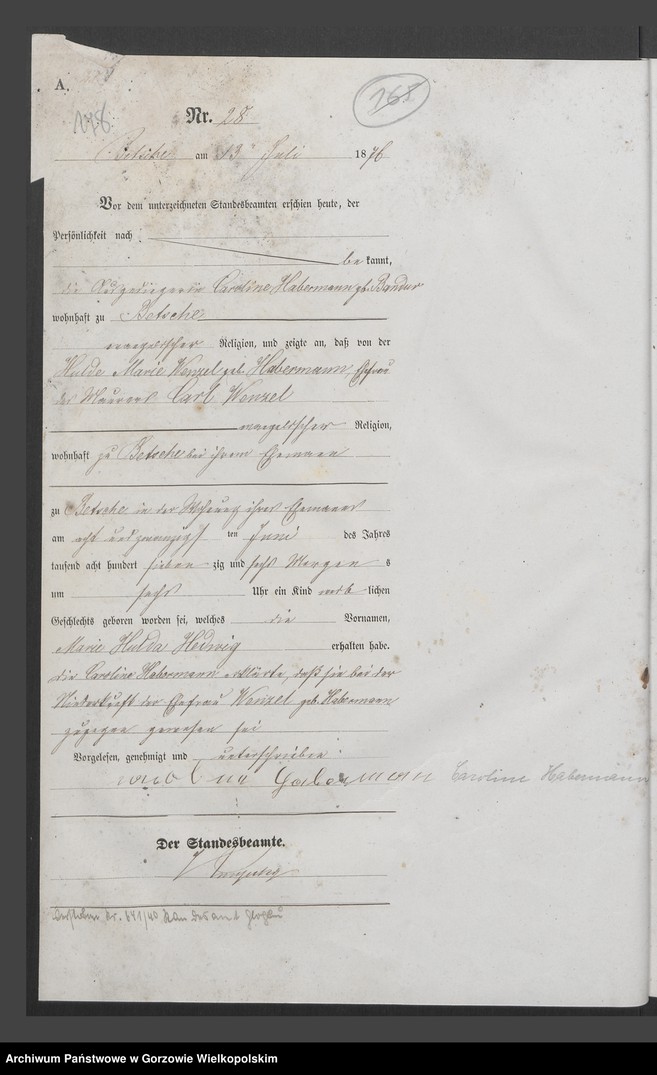 A.
168
178
Nr. 28
Betsche am 13 Juli 1876
Vor dem unterzeichneten Standesbeamten erschien heute, der
Persönlichkeit nach
be kannt,
die Ausgedingerin Caroline Habermann geb. Bandur
wohnhaft zu Betsche
evangelischer Religion, und zeigte an, daß von der
Hulda Marie Wenzel geb. Habermann, Ehefrau
des Maurers Carl Wenzel
evangelischer Religion,
wohnhaft zu Betsche bei ihrem Ehemann
zu Betsche in der Wohnung ihres Ehemanns
am acht und zwanzigs ten Juni des Jahres
tausend acht hundert sieben zig und sechs Morgen s
um sechs Uhr ein Kind weib lichen
Geschlechts geboren worden sei, welches die Vornamen,
Marie Hulda Hedwig erhalten habe.
die Caroline Habermann erklärte, daß sie bei der
Niederkunft der Ehefrau Wenzel geb. Habermann
zugegen gewesen sei
Vorgelesen, genehmigt und unterschrieben:
Caroline Habermann
Der Standesbeamte.
Verstorben Nr. 641/40 Standesamt Glogau
Archiwum Państwowe w Gorzowie Wielkopolskim